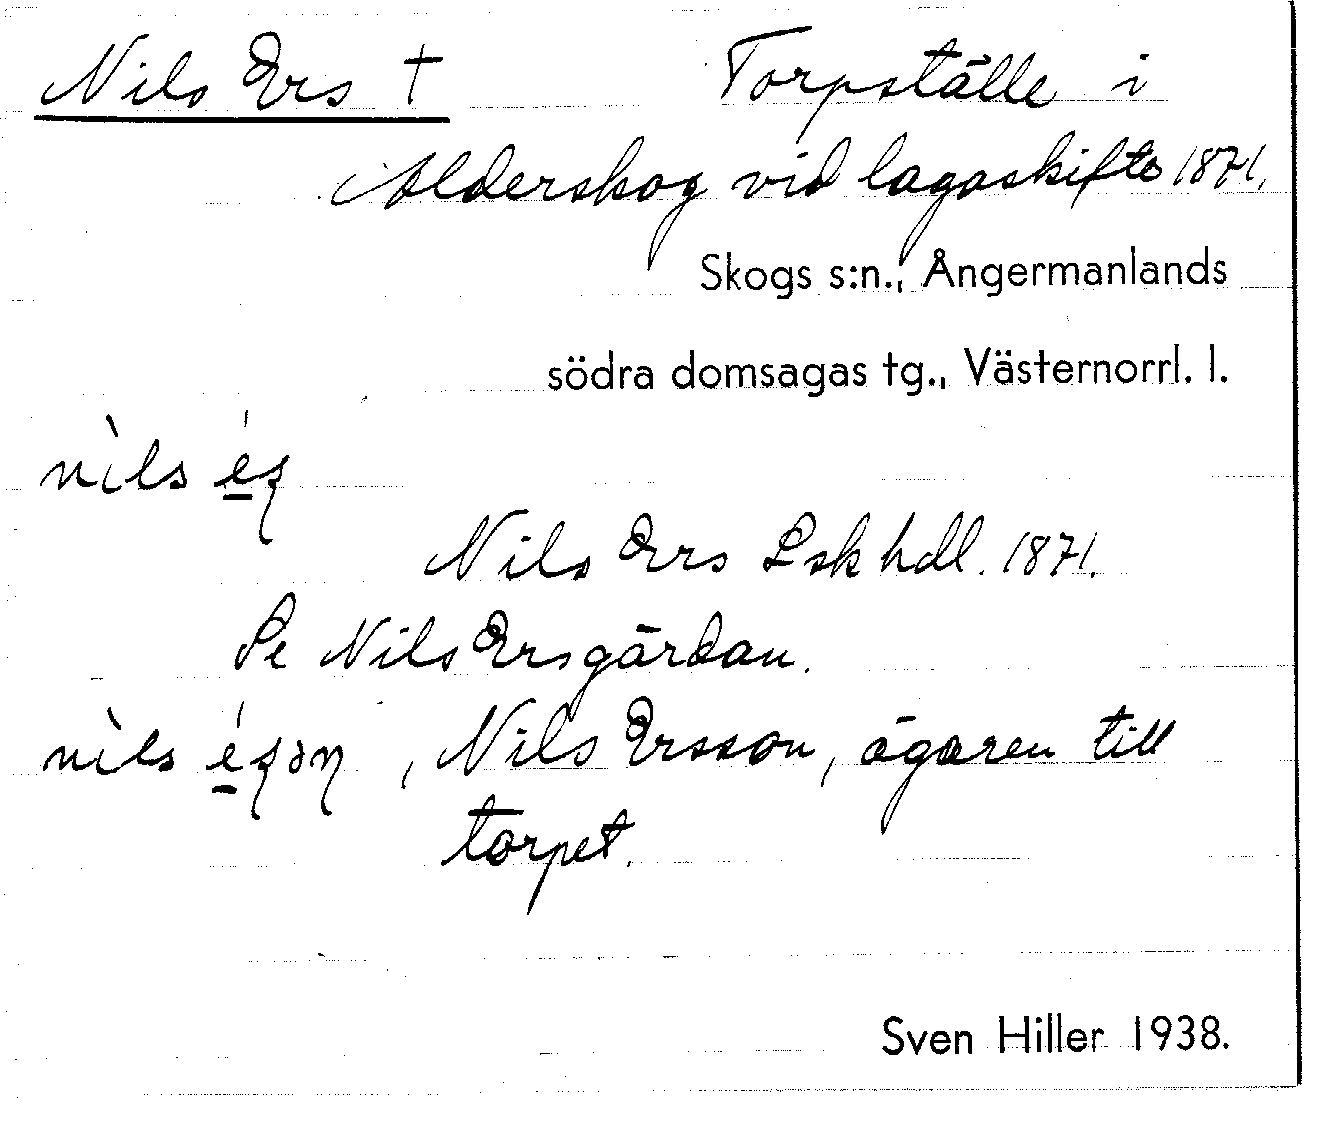 Nils Ers † Torpställe i
Alderskog vid lagaskifte 1871.
Skogs s:n., Ångermanlands
södra domsagas tg., Västernorrl. l.
nìls
Nils Ers Lskhdl. 1871.
Se Nils Ersgårdan.
nìls , Nils Ersson, ägaren till
torpet.
Sven Hiller 1938.